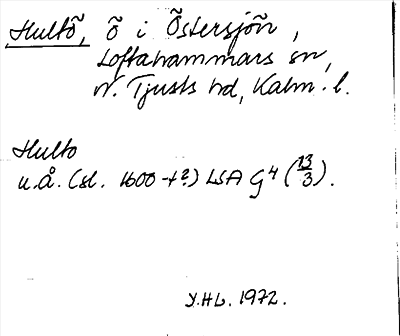 Hultö, ö i Östersjön,
Loftahammars sn,
N. Tjusts hd, Kalm. l.
Hulto
u.å. (sl. 1600-t?) LSA G4 (13/3).
Y.HL. 1972.